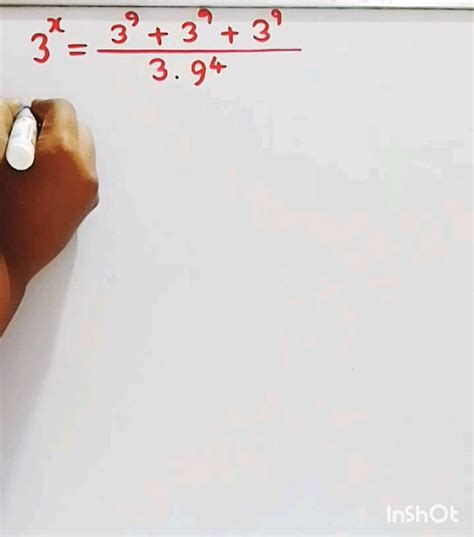 3^x = (3^9 + 3^9 + 3^9) / (3 . 9^4)
InShOt